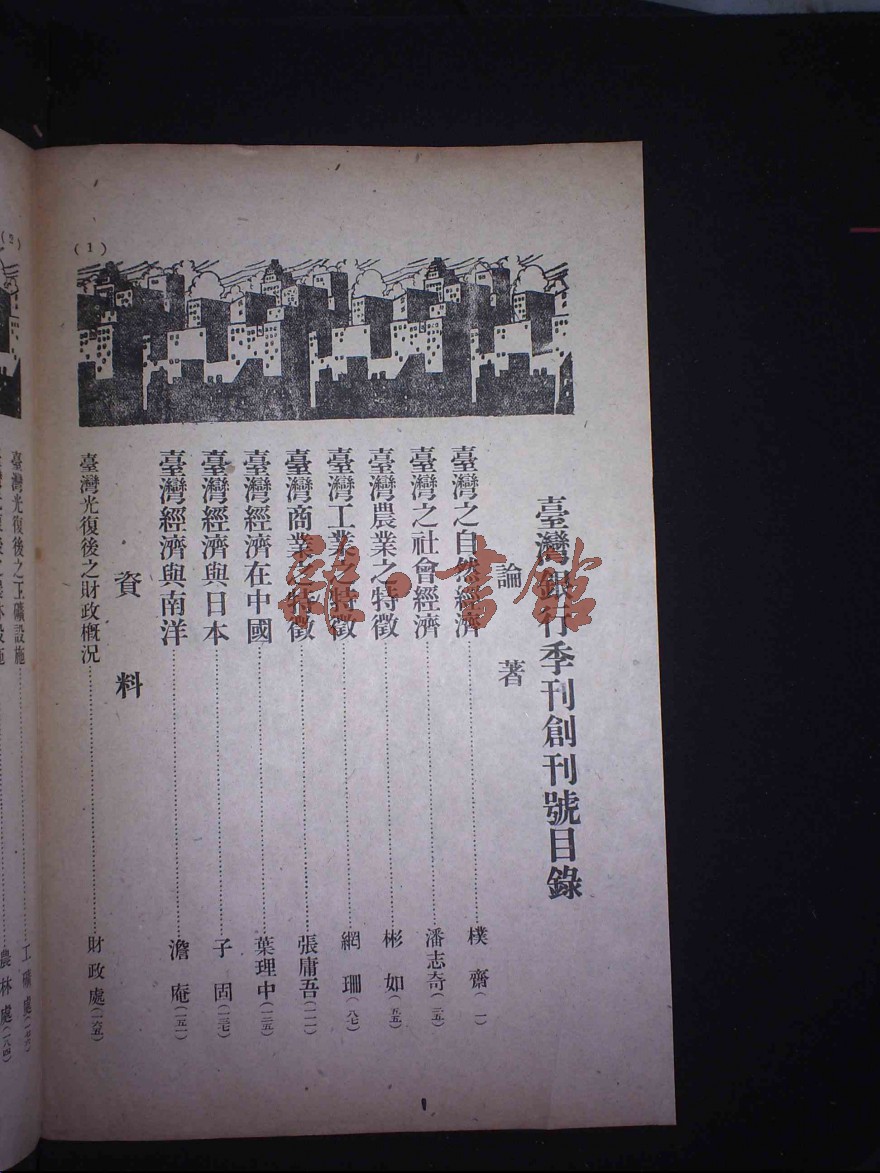 (1)
臺灣銀行季刊創刊號目錄
論著
臺灣之自然經濟……樸齋(一)
臺灣之社會經濟……潘志奇(二五)
臺灣農業之特徵……彬如(五五)
臺灣工業之特徵……網珊(八七)
臺灣商業之特徵……張庸吾(一一一)
臺灣經濟在中國……葉理中(一三五)
臺灣經濟與日本……子固(一三七)
臺灣經濟與南洋……澹庵(一五一)
資料
臺灣光復後之財政概況……財政處(一六五)
(2)
臺灣光復後之工礦設施……工礦處
農林處(一八四)
書館